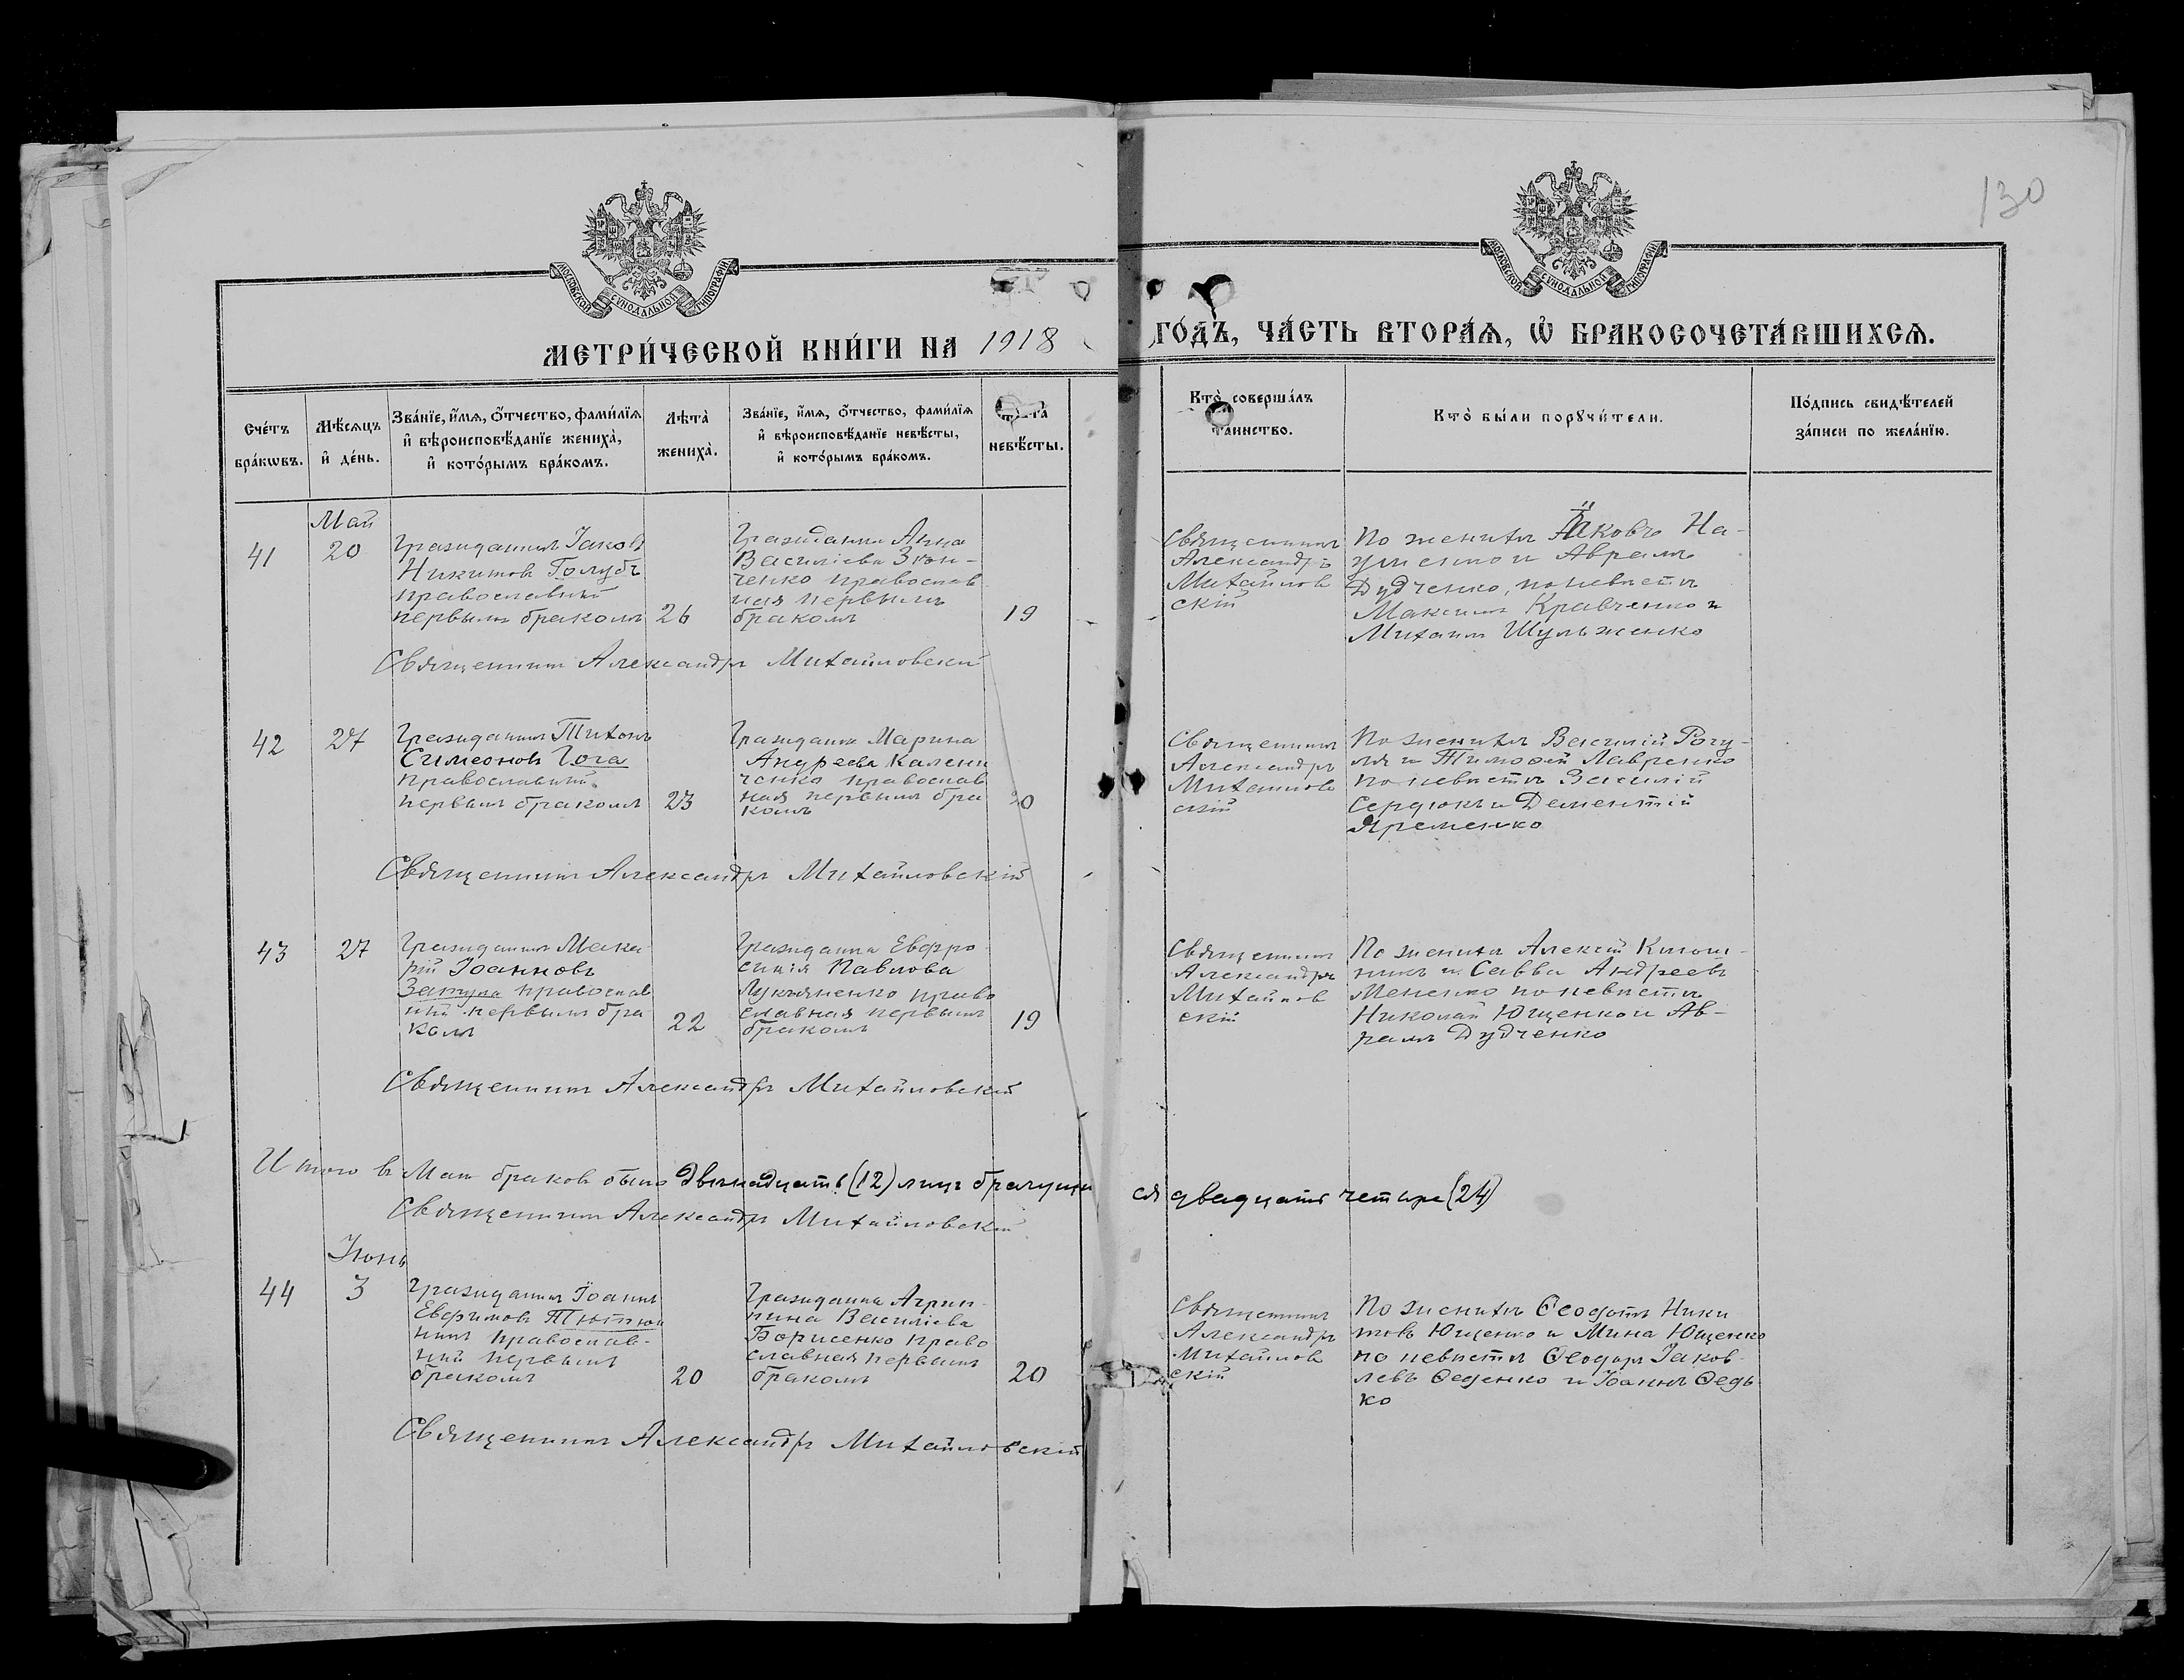 130
МОСКОВСКОЙ СУНОДАЛЬНОЙ ТИПОГРАФІИ
МОСКОВСКОЙ СУНОДАЛЬНОЙ ТИПОГРАФІИ
МЕТРИ́ЧЕСКОЙ КНИ́ГИ НА 1918 ГО́ДЪ, ЧА́СТЬ ВТОРА́Ѧ, Ѽ БРАКОСОЧЕТА́ВШИХСѦ.
Сче́тъ
бра́кѡвъ.
Мѣ́сѧцъ
и҆ де́нь.
Зва́нїе, и҆́мѧ, ѻ҆́тчество, фами́лїѧ
и҆ вѣроисповѣ́данїе жениха̀,
и҆ кото́рымъ бра́комъ.
Лѣта̀
жениха̀.
Зва́нїе, и҆́мѧ, ѻ҆́тчество, фами́лїѧ
и҆ вѣроисповѣ́данїе невѣ́сты,
и҆ кото́рымъ бра́комъ.
невѣ́сты.
Кто̀ соверша́лъ
таинство.
Кто̀ бы́ли порꙋчи́тели.
По́дпись свидѣ́телей
за́писи по жела́нїю.
Май
41
20
Гражданинъ Іаковъ
Никитовъ Голубъ
православный
первымъ бракомъ
26
Гражданка Анна
Василіева Зѣн-
ченко православ
ная первымъ
бракомъ
19
Священникъ
Александръ
Михайлов
скій
По женихѣ Іаковъ На-
уменко и Аврамъ
Дудченко, по невѣстѣ
Максимъ Кравченко и
Михаилъ Шульженко
Священникъ Александръ Михайловскій
42
27
Гражданинъ Тихонъ
Симеоновъ Гога
православный
первымъ бракомъ
23
Гражданка Марина
Андреева Калени
ченко православ
ная первымъ бра
комъ
20
Священникъ
Александръ
Михайлов
скій
По женихѣ Василій Рогу-
ля и Тимоѳей Лавренко
по невѣстѣ Василій
Сердюкъ и Дементій
Яременко
Священникъ Александръ Михайловскій
43
27
Гражданинъ Мака
рій Іоанновъ
Затула православ
ный первымъ бра
комъ
22
Гражданка Евфро
синія Павлова
Лукьяненко право
славная первымъ
бракомъ
19
Священникъ
Александръ
Михайлов
скій
По женихѣ Алексій
и Савва Андреевъ
по невѣстѣ
Николай Ющенко и Ав-
рамъ Дудченко
Священникъ Александръ Михайловскій
Итого въ Маѣ браковъ было двѣнадцать (12) лицъ брачущи
ся двадцать четыре (24)
Священникъ Александръ Михайловскій
Іюнь
44
3
Гражданинъ Іоаннъ
Евфимовъ Тютюн
никъ православ-
ный первымъ
бракомъ
20
Гражданка Агрип
пина Василіева
Борисенко право
славная первымъ
бракомъ
20
Священникъ
Александръ
Михайлов
скій
По женихѣ Ѳеодотъ Ники
товъ Ющенко и Мина Ющенко
по невѣстѣ Ѳеодоръ Іаков
левъ Ѳеденко и Іоаннъ Ѳедь
ко
Священникъ Александръ Михайловскій